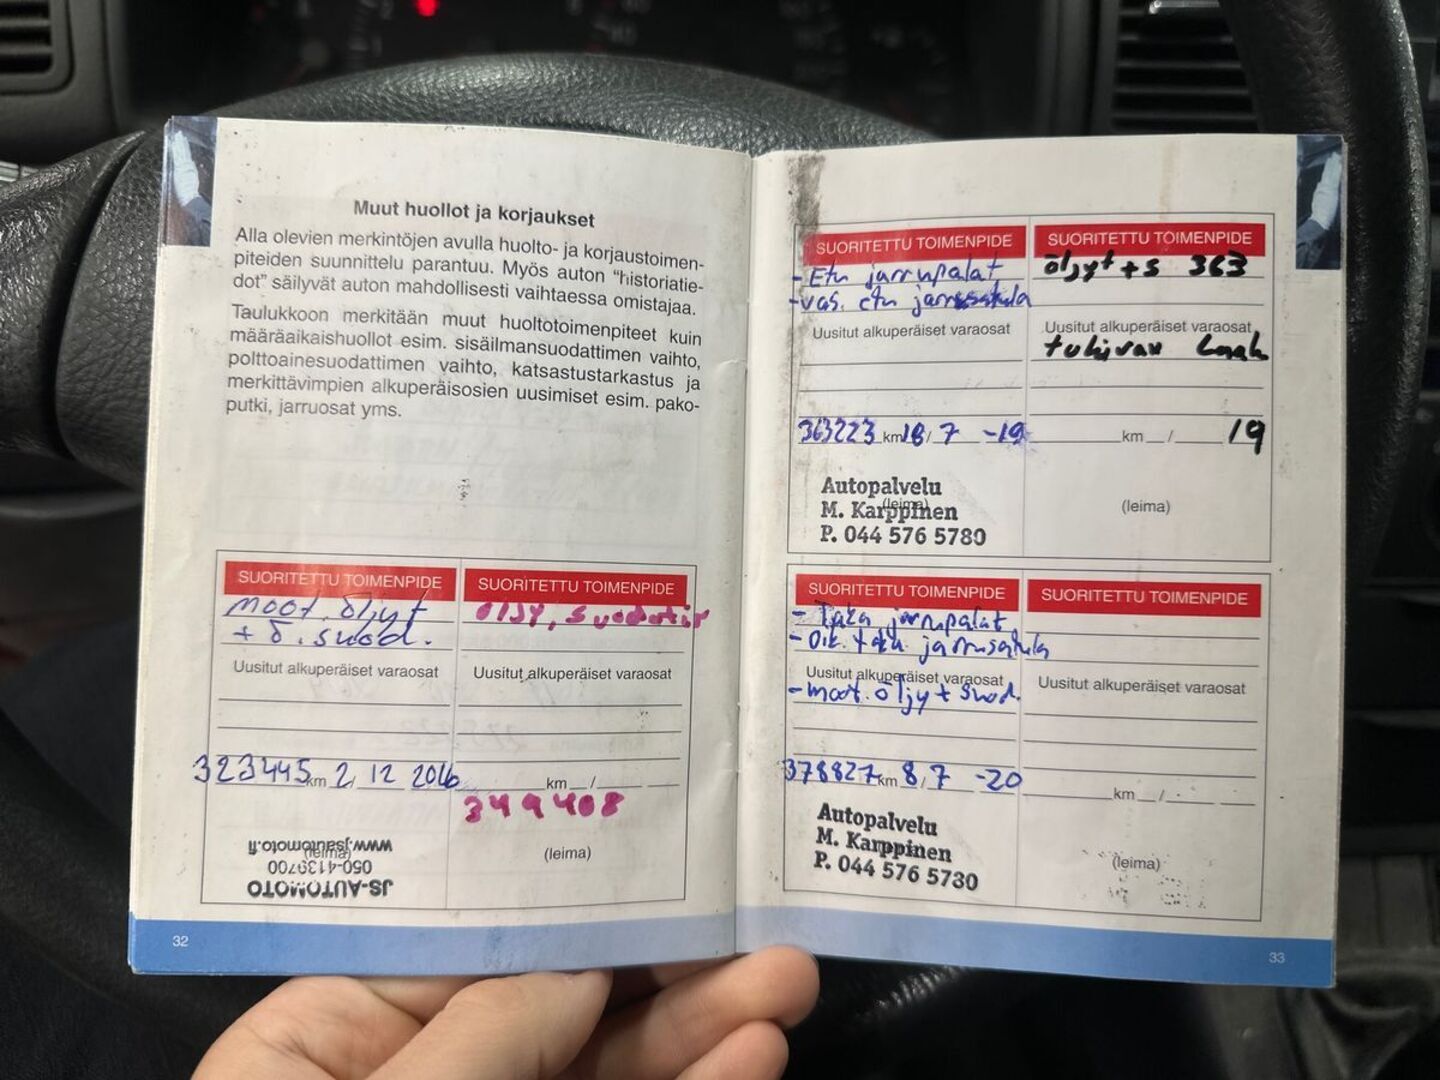 Muut huollot ja korjaukset
Alla olevien merkintöjen avulla huolto- ja korjaustoimen-
piteiden suunnittelu parantuu. Myös auton "historiatie-
dot" säilyvät auton mahdollisesti vaihtaessa omistajaa.
Taulukkoon merkitään muut huoltotoimenpiteet kuin
määräaikaishuollot esim. sisäilmansuodattimen vaihto,
polttoainesuodattimen vaihto, katsastustarkastus ja
merkittävimpien alkuperäisosien uusimiset esim. pako-
putki, jarruosat yms.
SUORITETTU TOIMENPIDE
moot. öljyt
+ ö. suod.
Uusitut alkuperäiset varaosat
323445 km 2/12 2016
(leima)
www.jsautomoto.fi
050-4139700
JS-AUTOMOTO
SUORITETTU TOIMENPIDE
öljy, suodatin
Uusitut alkuperäiset varaosat
km /
349408
(leima)
32
SUORITETTU TOIMENPIDE
- Etu jarrupalat
- vas. etu jarrusatula
Uusitut alkuperäiset varaosat
363223 km 18/7 -19
Autopalvelu
(leima)
M. Karppinen
P. 044 576 5780
SUORITETTU TOIMENPIDE
öljyt + s 363
Uusitut alkuperäiset varaosat
km / 19
(leima)
SUORITETTU TOIMENPIDE
- Taka jarrupalat
- Oik. taka jarrusatula
Uusitut alkuperäiset varaosat
- moot. öljy + suod.
378827 km 8/7 -20
Autopalvelu
M. Karppinen
P. 044 576 5780
SUORITETTU TOIMENPIDE
Uusitut alkuperäiset varaosat
km /
(leima)
33